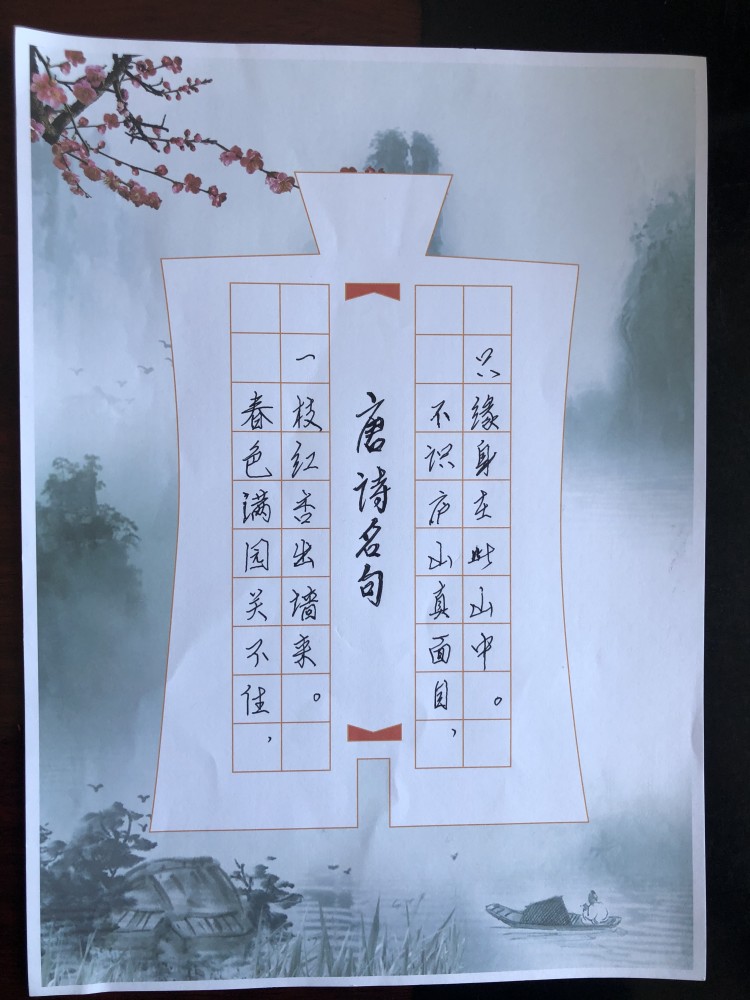 春色满园关不住，
一枝红杏出墙来。
唐诗名句
不识庐山真面目，
只缘身在此山中。